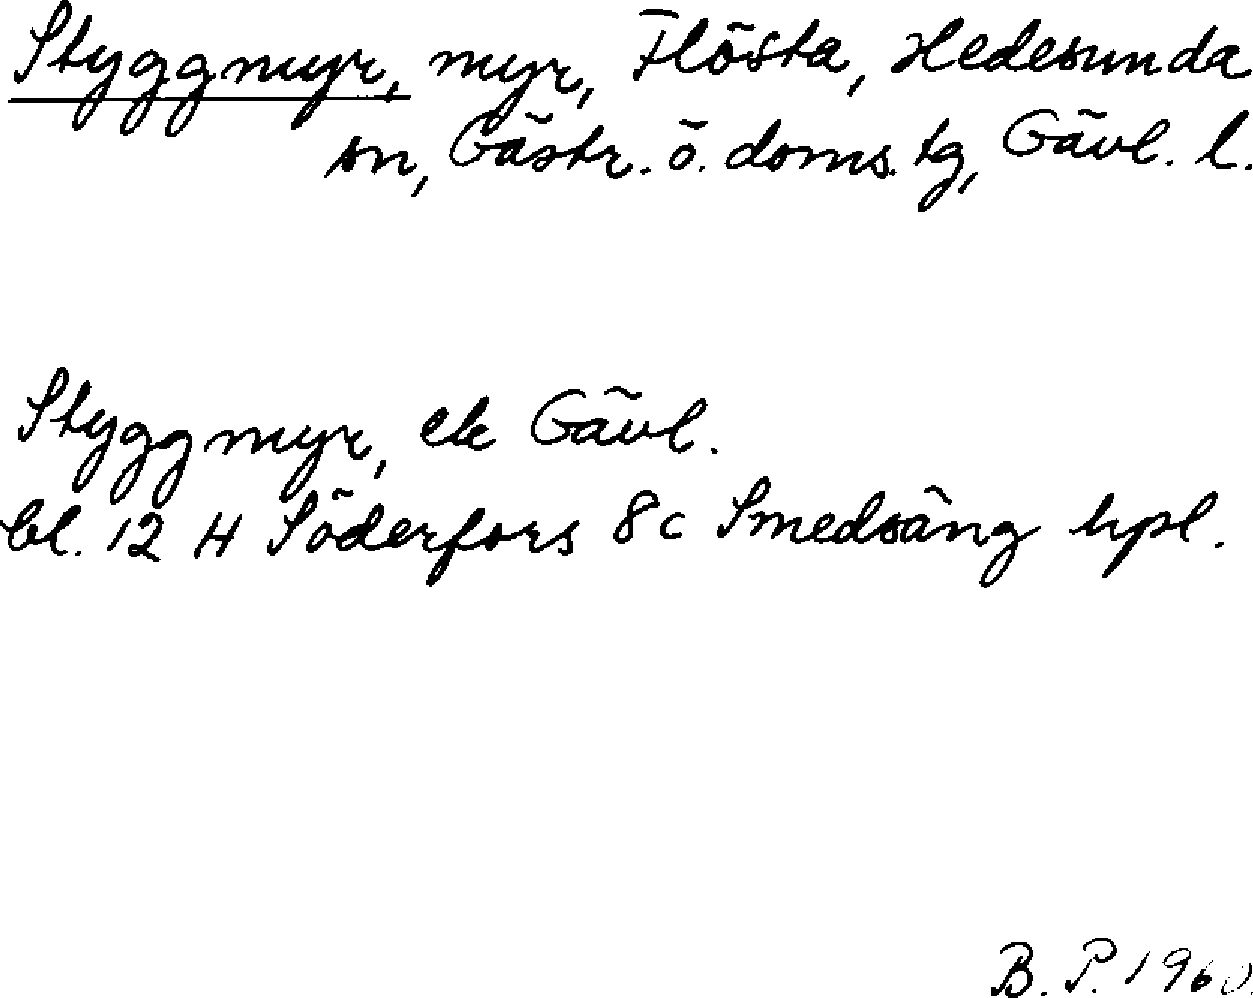 Styggmyr, myr, Flösta, Hedesunda
sn, Gästr. ö. doms. tg, Gävl. l.
Styggmyr, ek Gävl.
bl. 12 H Söderfors 8c Smedsäng hpl.
B. P. 1960.